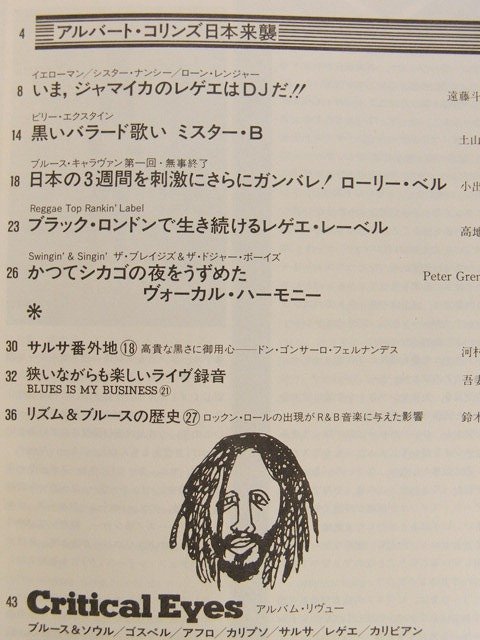 4 アルバート・コリンズ日本来襲
イエローマン／シスター・ナンシー／ローン・レンジャー
8 いま，ジャマイカのレゲエはDJだ!! 遠藤斗
ビリー・エクスタイン
14 黒いバラード歌い ミスター・B 土山
ブルース・キャラヴァン第一回・無事終了
18 日本の3週間を刺激にさらにガンバレ! ローリー・ベル 小出
Reggae Top Rankin' Label
23 ブラック・ロンドンで生き続けるレゲエ・レーベル 高地
Swingin' & Singin' ザ・ブレイジズ＆ザ・ドジャー・ボーイズ
26 かつてシカゴの夜をうずめた Peter Gren
ヴォーカル・ハーモニー
＊
30 サルサ番外地⑱ 高貴な黒さに御用心――ドン・ゴンサーロ・フェルナンデス 河村
32 狭いながらも楽しいライヴ録音 吾妻
BLUES IS MY BUSINESS㉑
36 リズム＆ブルースの歴史㉗ ロックン・ロールの出現がR&B音楽に与えた影響 鈴木
43 Critical Eyes アルバム・リヴュー
ブルース&ソウル／ゴスペル／アフロ／カリプソ／サルサ／レゲエ／カリビアン